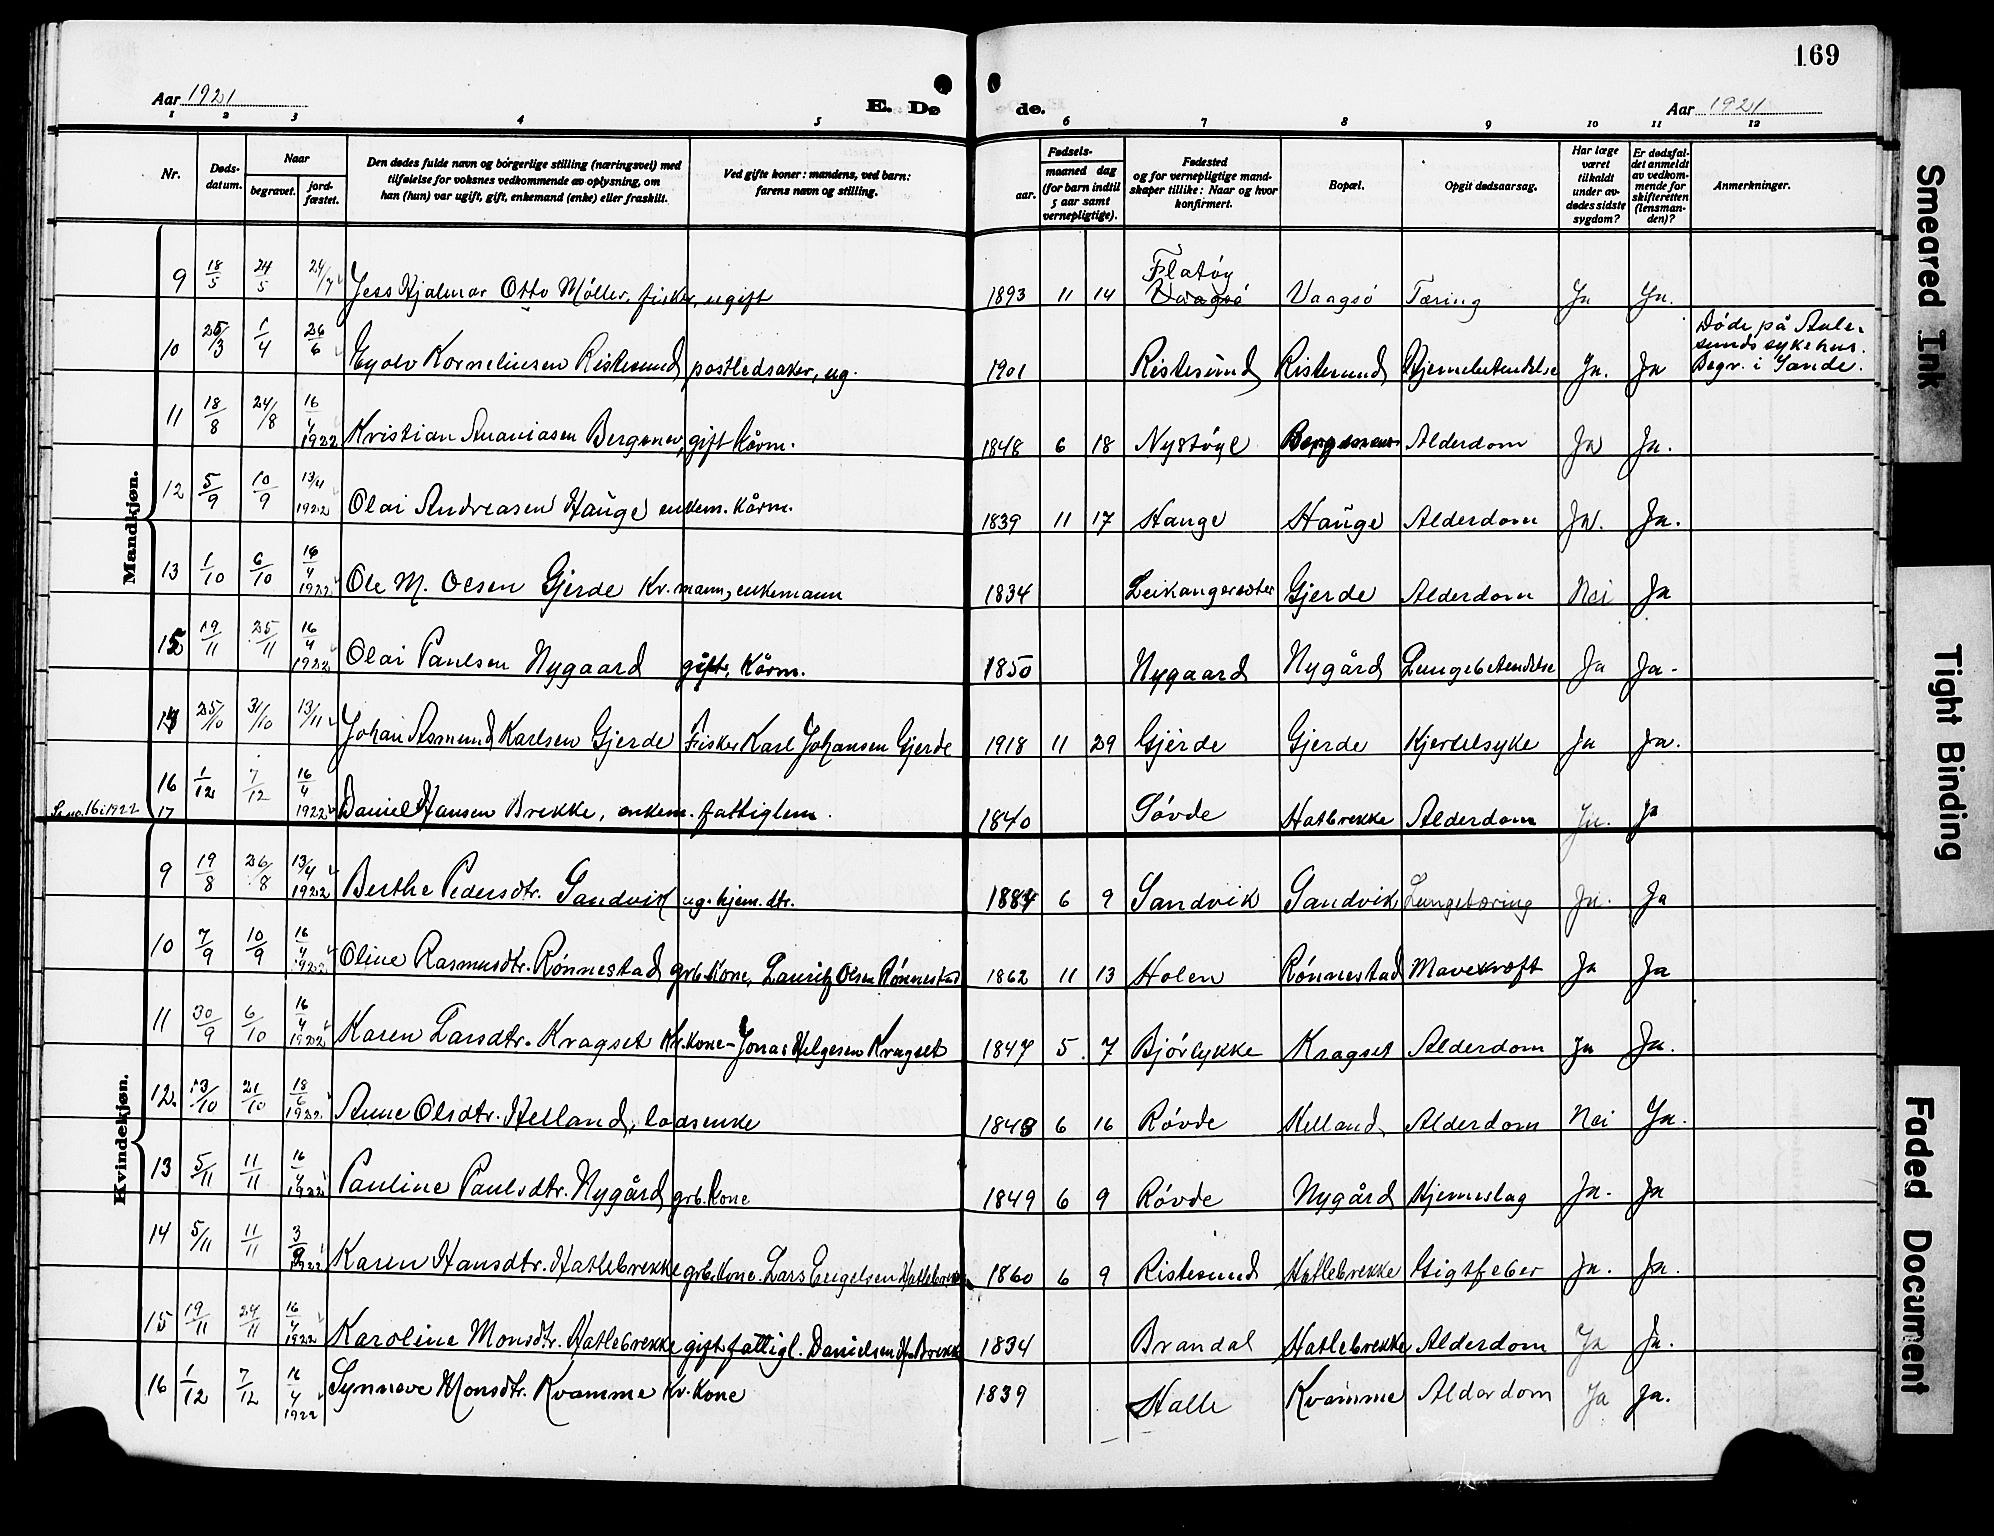 169
Aar 1921
E. Dø
de.
Aar 1921
1 2 3 4 5 6 7 8 9 10 11 12
Nr.
Døds-
datum.
Naar
begravet.
jord-
fæstet.
Den dødes fulde navn og borgerlige stilling (næringsvei) med
tilføielse for voksnes vedkommende av oplysning, om
han (hun) var ugift, gift, enkemand (enke) eller fraskilt.
Ved gifte koner: mandens, ved barn:
farens navn og stilling.
Fødsels-
aar.
maaned dag
(for barn indtil
5 aar samt
vernepligtige).
Fødested
og for vernepligtige mand-
skaper tillike: Naar og hvor
konfirmert.
Bopæl.
Opgit dødsaarsag.
Har læge
været
tilkaldt
under av-
dødes sidste
sygdom?
Er dødsfal-
det anmeldt
av vedkom-
mende for
skifteretten
(lensman-
den)?
Anmerkninger.
Mandkjøn.
9 18/5 24/5 24/7 Jess Hjalmar Otto Møller, fisker, ugift 1893 11 14 Flatøy Vaagsø Vaagsø Tæring Ja Ja.
10 25/3 1/4 26/6 Eyolv Korneliusen Ristesund postledsaker, ug. 1901 Ristesund Ristesund Hjernebetendelse Ja. Ja Døde på Aale-
sunds sykehus.
Begr. i Sande.
11 18/8 24/8 16/4 1922 Kristian Ananiasen Bergsnev, gift Kårm. 1848 6 18 Nystøyl Alderdom Ja Ja.
12 5/9 10/9 13/4 1922 Olai Andreasen Hauge enkem. Kårm. 1839 11 17 Hauge Hauge Alderdom Ja. Ja.
13 1/10 6/10 16/4 1922 Ole M. Olsen Gjerde Kv. mann, enkemann 1834 Leikangersæter Gjerde Alderdom Nei Ja
15 19/11 25/11 16/4 1922 Olai Paulsen Nygaard gift, Kårm. 1850 Nygaard Nygård Lungebetendelse Ja Ja.
14 25/10 31/10 13/11 Johan Asmund Karlsen Gjerde Fisker Karl Johansen Gjerde 1918 11 29 Gjerde Gjerde Kjertelsyke Ja Ja.
16 1/12 7/12 16/4 1922 Daniel Hansen Brekke, enkem. fattiglem. 1840 Søvde Hatlbrekke Alderdom Ja. Ja
Se no. 16 i 1922 17
Kvindekjøn.
9 19/8 26/8 13/4 1922 Berthe Pedersdtr. Sandvik ug. hjem. dtr. 1884 6 9 Sandvik Sandvik Lungetæring Ja. Ja
10 7/9 10/9 16/4 1922 Oline Rasmusdtr. Rønnestad grb. Kone, Lauritz Olsen Rønnestad 1862 11 13 Holen Rønnestad Mavekræft Ja Ja
11 30/9 6/10 16/4 1922 Karen Larsdtr. Kragset Kv. Kone - Jonas Helgesen Kragset 1847 5 7 Bjørlykke Kragset Alderdom Ja Ja.
12. 13/10 21/10 18/6 1922 Anne Olsdtr. Helland, losenke 1843 6 16 Røvde Helland, Alderdom Nei Ja.
13 5/11 11/11 16/4 1922 Pauline Paulsdtr. Nygård grb. Kone 1849 6 9 Røvde Nygård Hjerneslag Ja. Ja
14 5/11 11/11 3/9 1922 Karen Hansdtr. Hatlebrekke grb. Kone. Lars Engelsen Hatlebrekke 1860 6 9 Ristesund Hatlebrekke Gigtfeber Ja. Ja.
15 19/11 24/11 16/4 1922 Karoline Monsdtr. Hatlebrekke gift fattigl. Danielsen H. Brekke 1834 Brandal Hatlebrekke Alderdom Ja Ja.
16 1/12 7/12 16/4 1922 Synneve Monsdtr. Kvamme Kv. Kone 1839 Halle Kvamme Alderdom Ja Ja.
Smeared Ink
Tight Binding
Faded Document